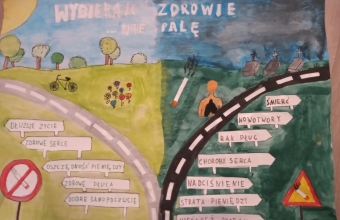 WYBIERAJĄC ZDROWIE
NIE PALĘ
DŁUŻSZE ŻYCIE
ZDROWE SERCE
OSZCZĘDNOŚĆ PIENIĘDZY
ZDROWE PŁUCA
DOBRE SAMOPOCZUCIE
ŚMIERĆ
NOWOTWORY
RAK PŁUC
CHOROBA SERCA
NADCIŚNIENIE
STRATA PIENIĘDZY